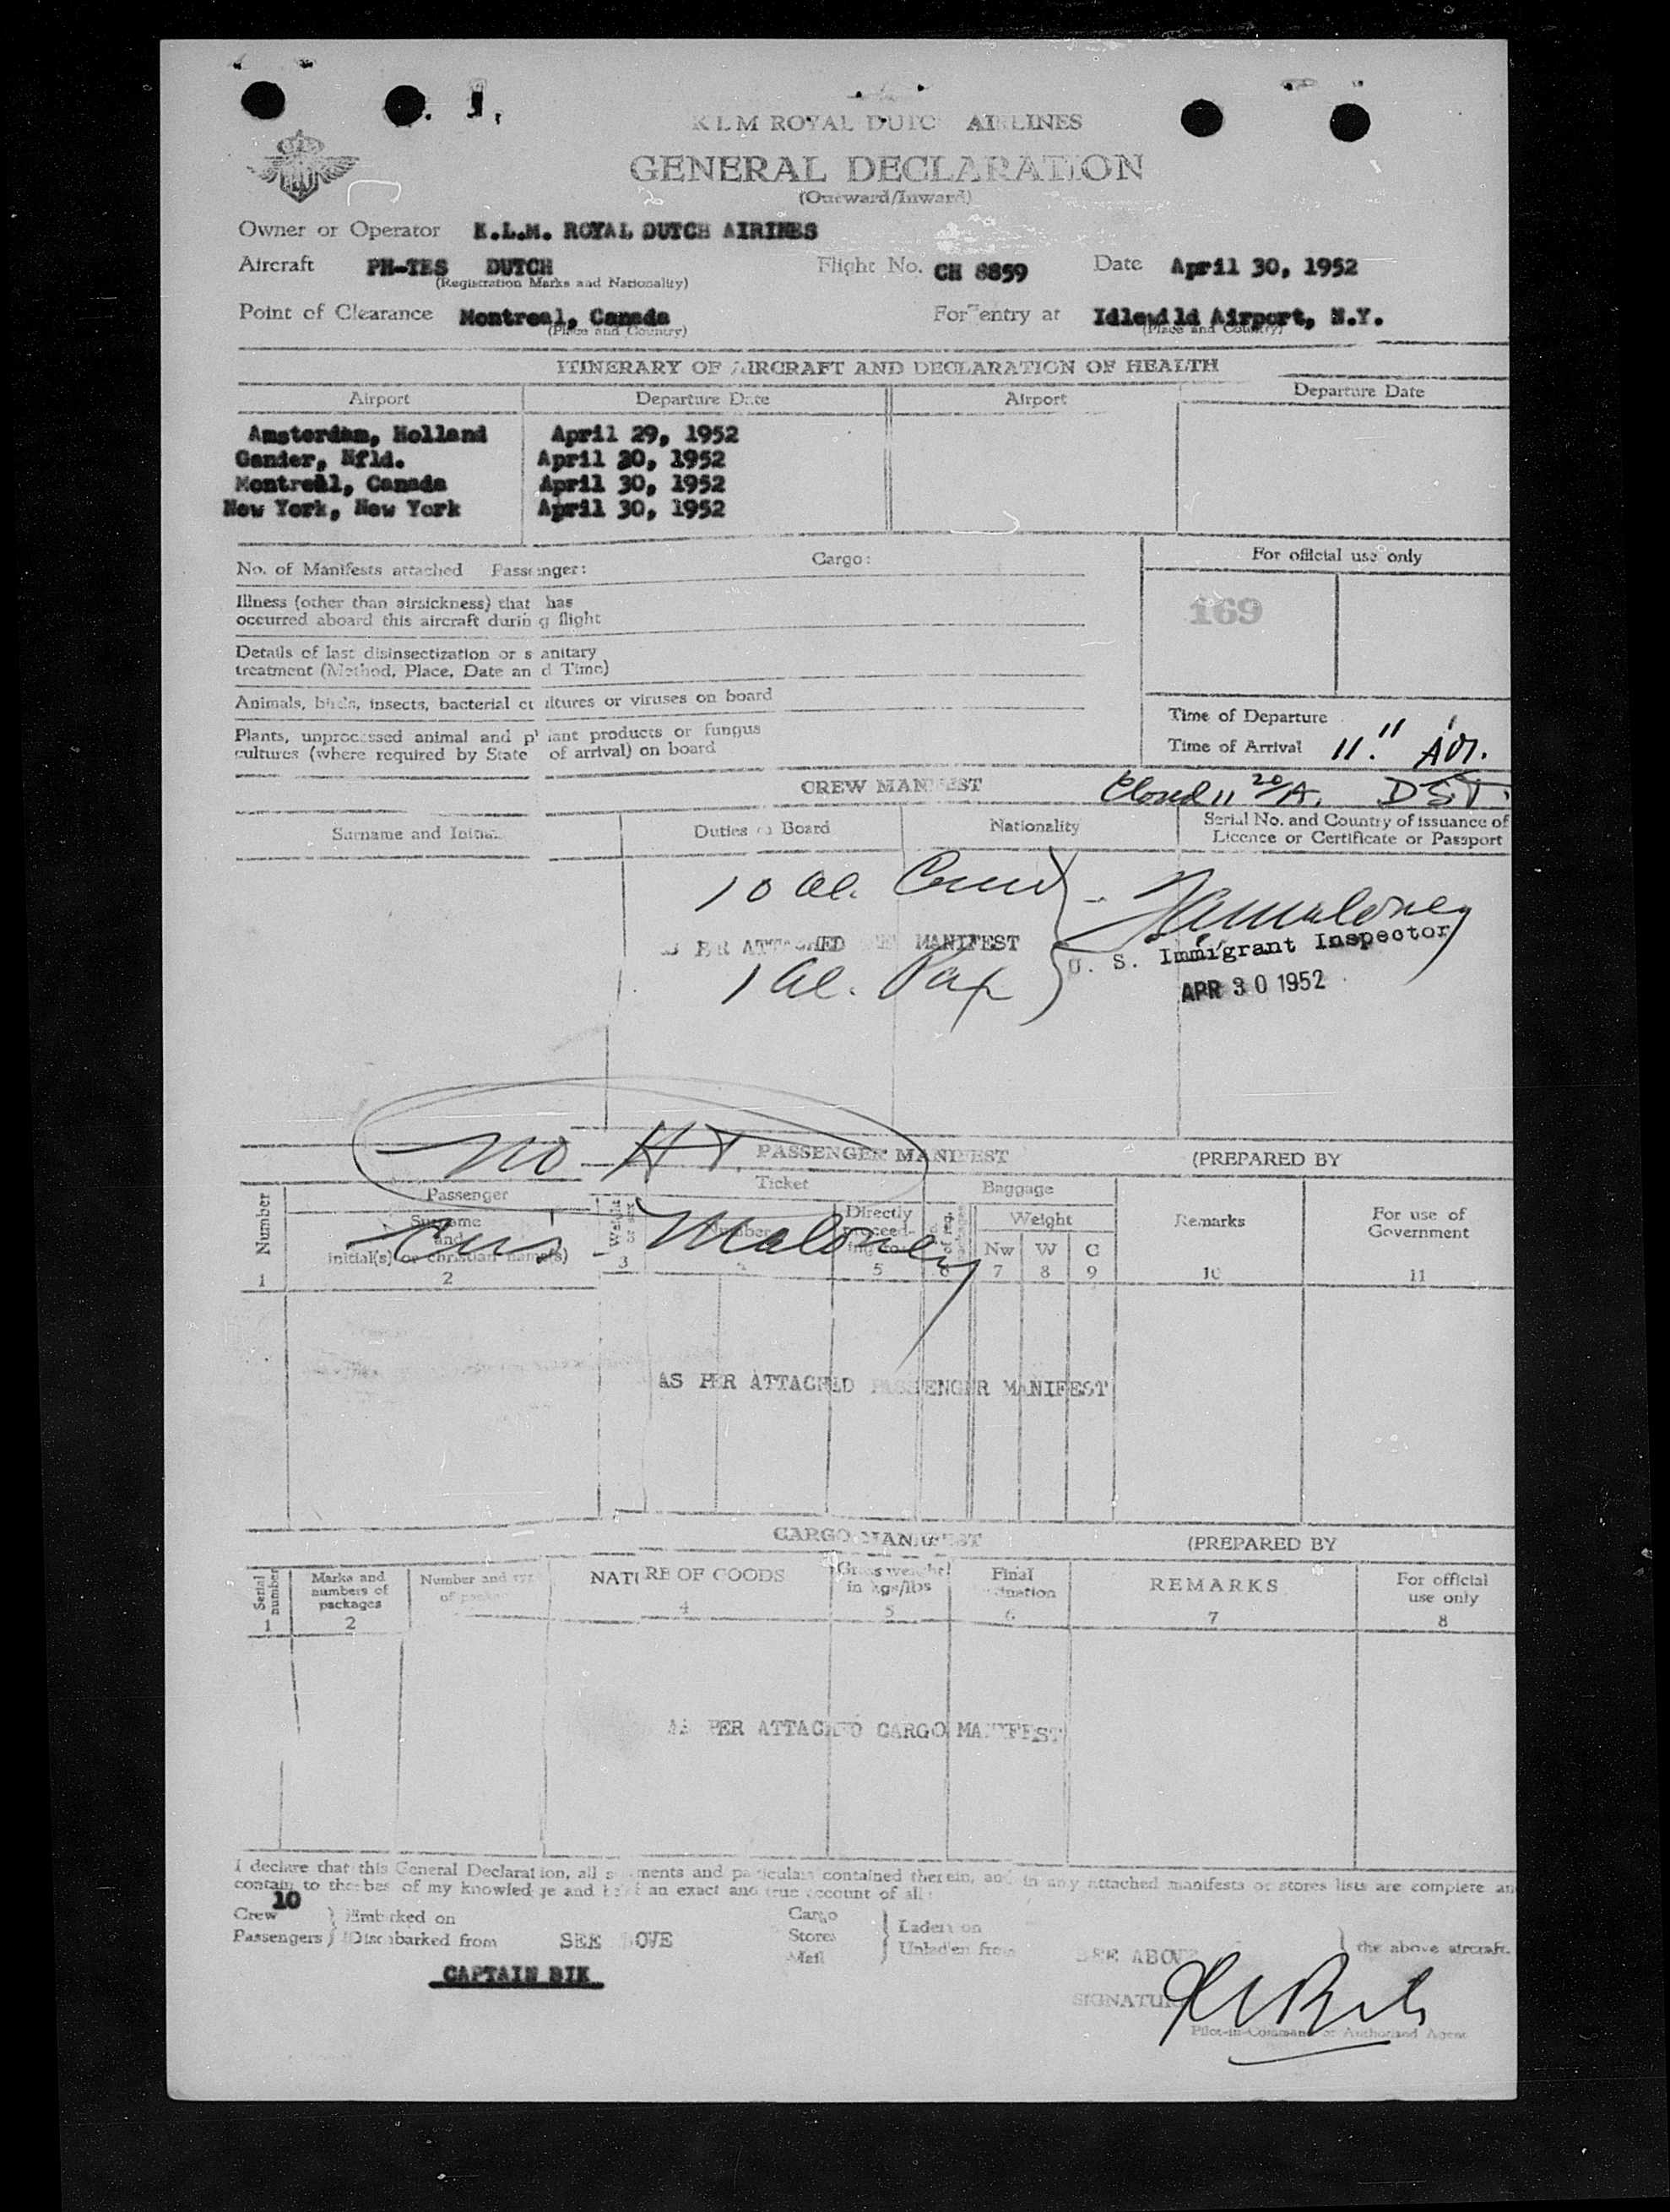 KLM ROYAL DUTCH AIRLINES
GENERAL DECLARATION
(Outward/Inward)
Owner or Operator K.L.M. ROYAL DUTCH AIRINES
Aircraft PH-TES DUTCH Flight No. CH 8859 Date April 30, 1952
(Registration Marks and Nationality)
Point of Clearance Montreal, Canada For entry at Idlewild Airport, N.Y.
(Place and Country) (Place and Country)
ITINERARY OF AIRCRAFT AND DECLARATION OF HEALTH
Airport Departure Date Airport Departure Date
Amsterdam, Holland April 29, 1952
Gander, Nfld. April 30, 1952
Montreal, Canada April 30, 1952
New York, New York April 30, 1952
No. of Manifests attached Passenger: Cargo: For official use only
Illness (other than airsickness) that has
occurred aboard this aircraft during flight
169
Details of last disinsectization or sanitary
treatment (Method, Place, Date and Time)
Animals, birds, insects, bacterial cultures or viruses on board
Plants, unprocessed animal and plant products or fungus
cultures (where required by State of arrival) on board
Time of Departure
Time of Arrival 11:11 AM.
CREW MANIFEST 11 20/A. DST.
Surname and Initial Duties on Board Nationality Serial No. and Country of issuance of
Licence or Certificate or Passport
10 al. Crew
Maloney
AS PER ATTACHED CREW MANIFEST
U. S. Immigrant Inspector
1 al. Pax
APR 30 1952
NO HT. PASSENGER MANIFEST (PREPARED BY
Number Passenger Ticket Baggage
Surname
and
initial(s) or christian name(s)
Number Directly
proceeding to
Weight
Nw W C
Remarks For use of
Government
Maloney
1 2 3 4 5 6 7 8 9 10 11
AS PER ATTACHED PASSENGER MANIFEST
CARGO MANIFEST (PREPARED BY
Serial
number
Marks and
numbers of
packages
Number and type
of packages
NATURE OF GOODS Gross weight
in kgs/lbs
Final
destination
REMARKS For official
use only
1 2 4 5 6 7 8
AS PER ATTACHED CARGO MANIFEST
I declare that this General Declaration, all statements and particulars contained therein, and in any attached manifests or stores lists are complete and
contain to the best of my knowledge and belief an exact and true account of all:
10
Crew Embarked on Cargo Laden on
Passengers Disembarked from SEE ABOVE Stores Unladen from SEE ABOVE the above aircraft.
Mail
CAPTAIN BIK
SIGNATURE
Pilot-in-Command or Authorized Agent